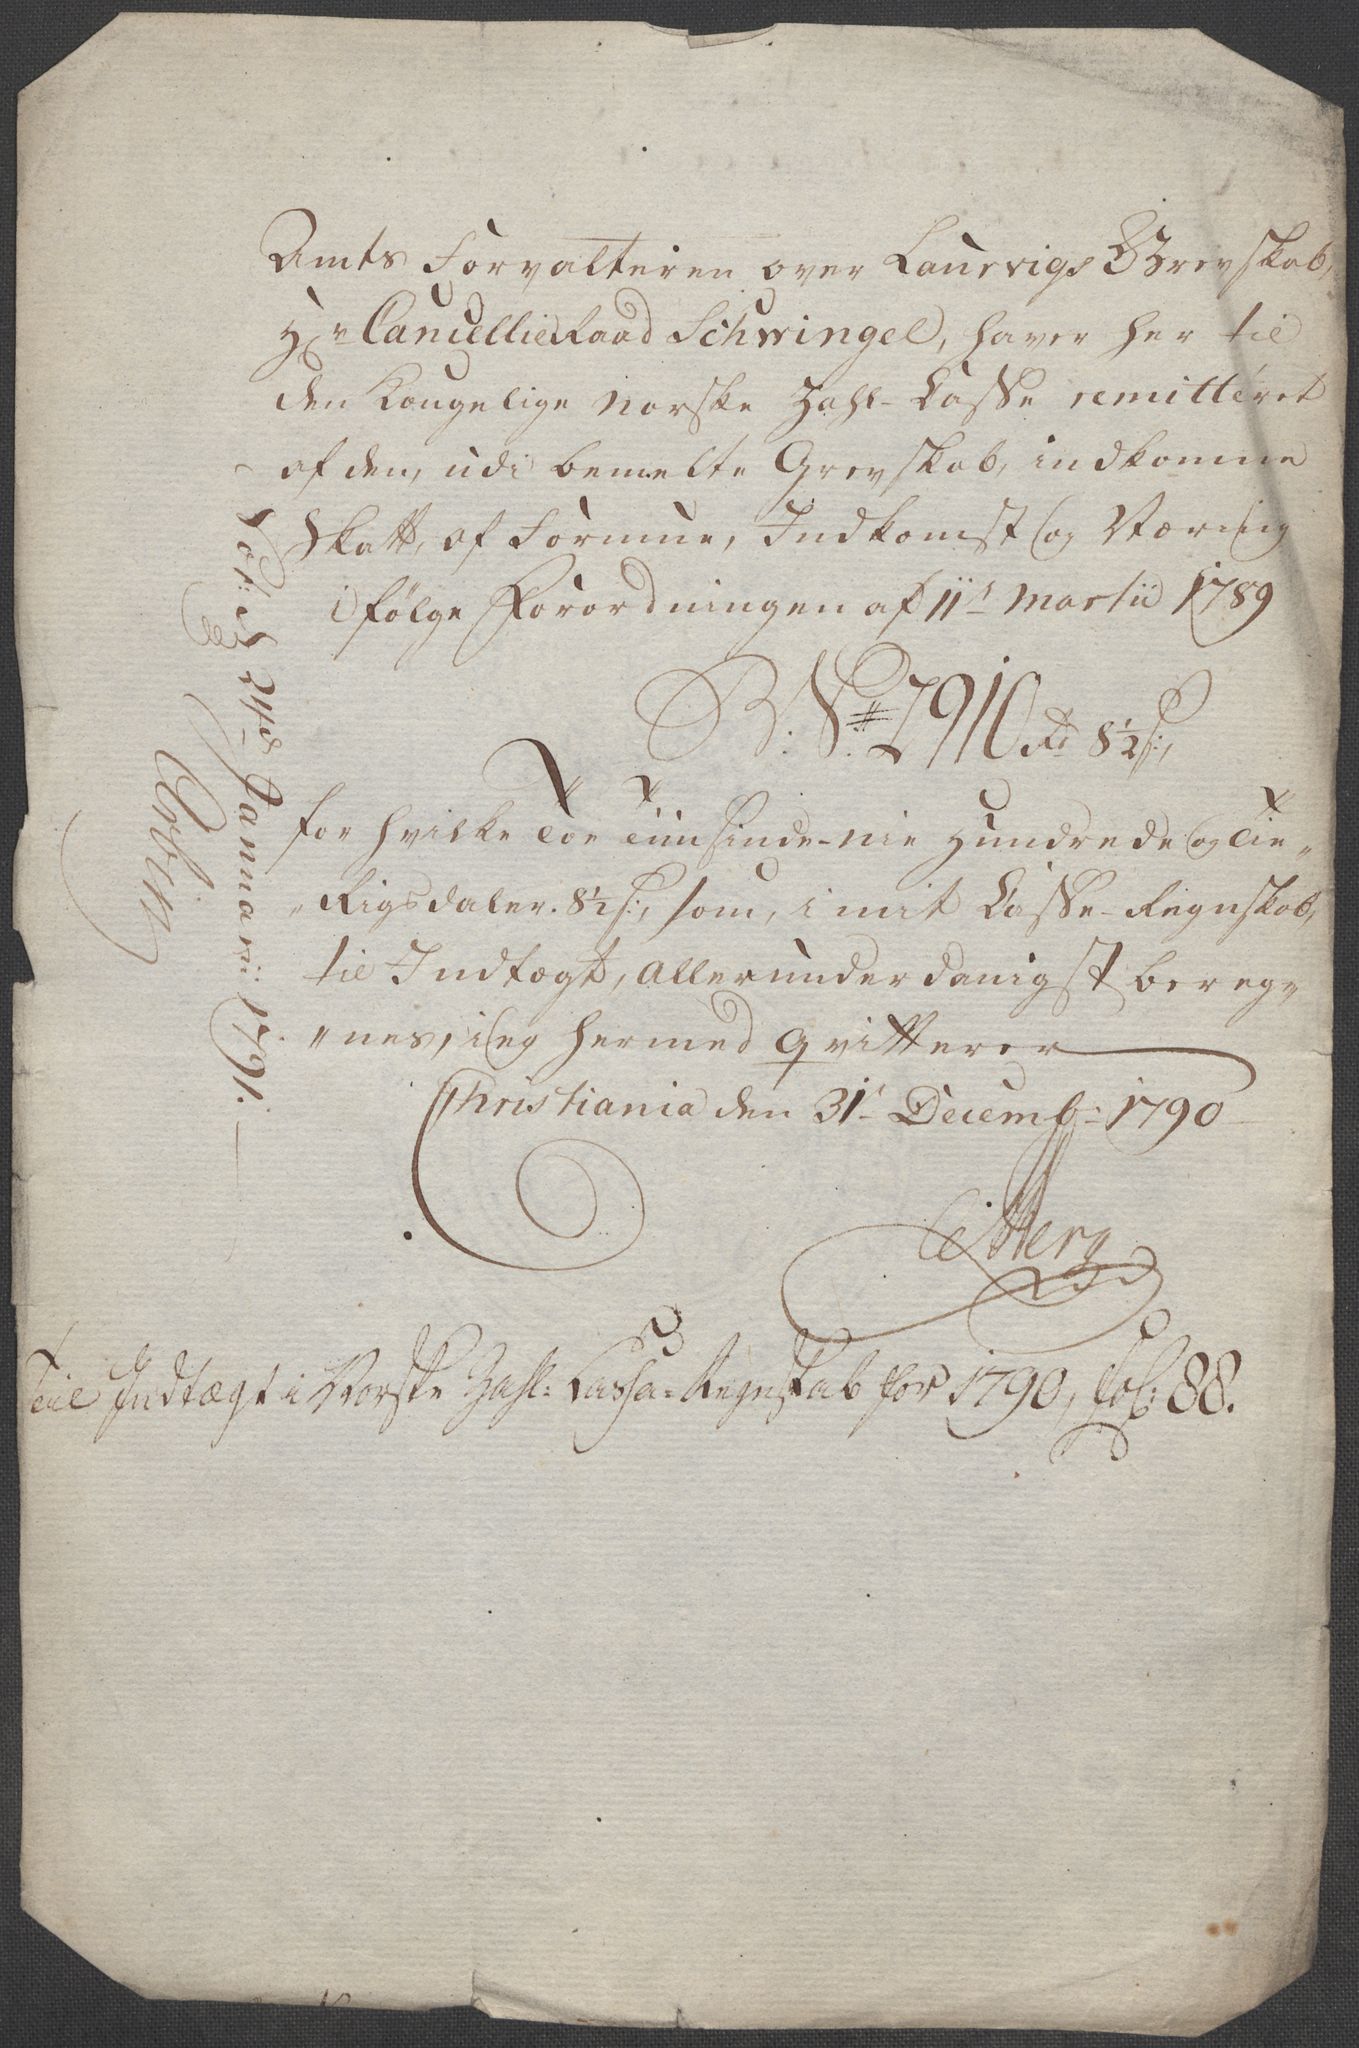 Amts Forvalteren over Laurvigs Grevskab,
Hr Cancellie Raad Schwingel, haver her til
den Kongelige norske Zahl-Casse remitteret
af den, udi bemelte Grevskab, indkomne
Skatt, af Formue, Indkomst og Næring
i følge Forordningen af 11te Martii 1789
2910 Rd 8½ s:,
for hvilke Toe Tusinde-nie Hundrede og Tie„
„Rigsdaler. 8½ s:, som, i mit Casse-Regnskab,
til Indtægt, allerunderdanigst bereg„
„nes, ieg hermed qvitterer
Christiania den 31te Decembr: 1790
Til Indtægt i Norske Zahl-Cassa-Regnskab for 1790, fol: 88.
Not: d 24de Januarii 1791.